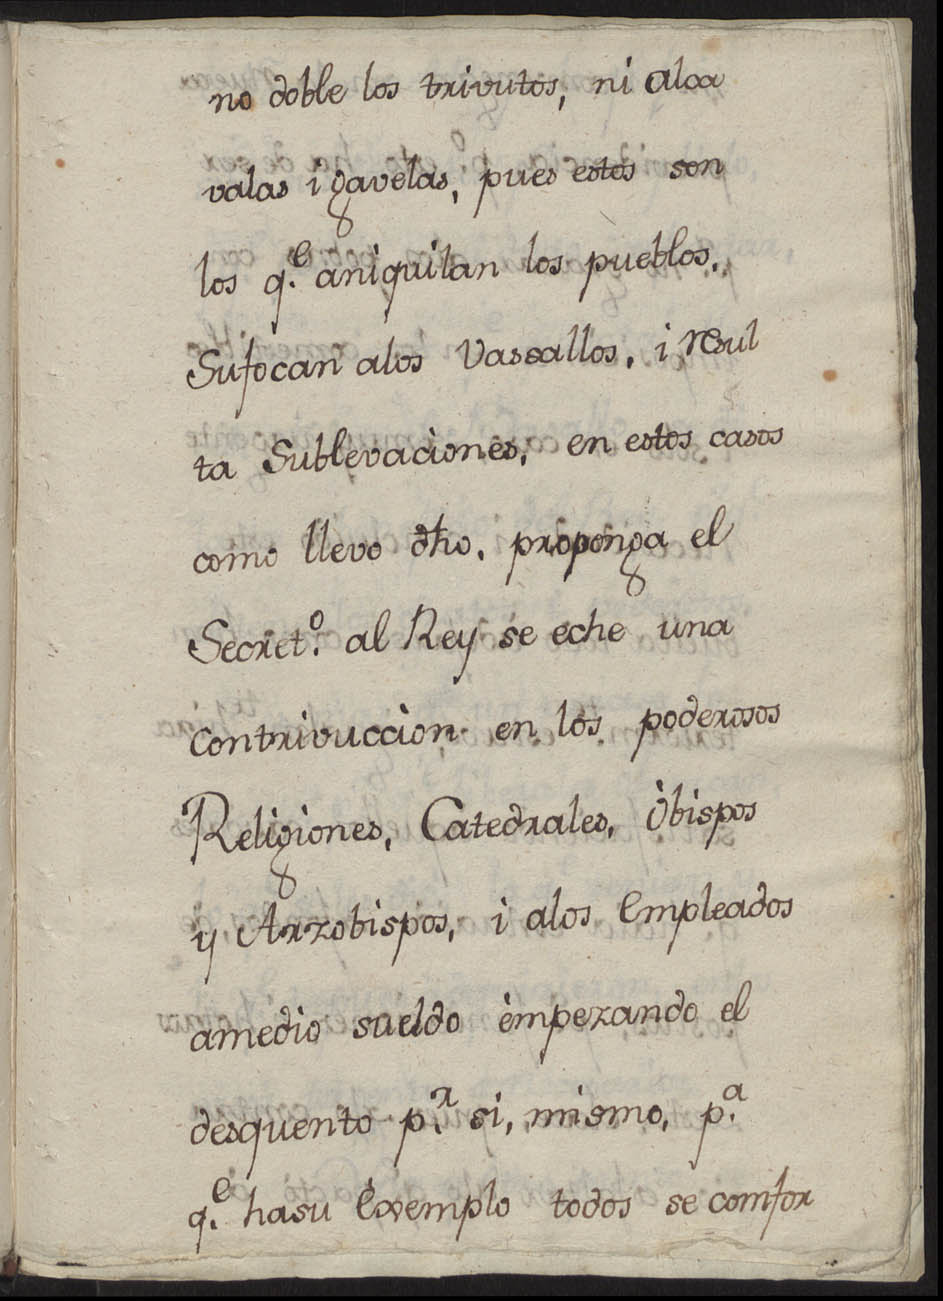 no doble los trivutos, ni alca
valas i gavelas, pues estos son
los q.e aniquilan los pueblos.
Sufocan alos Vassallos, i resul
ta Sublevaciones, en estos casos
como llevo dho. proponga el
Secret.o al Rey se eche una
contrivuccion en los poderosos
Religiones, Catedrales, Obispos
y Arzobispos, i alos Empleados
amedio sueldo empezando el
desquento p.r si, mismo, p.a
q.e hasu Exemplo todos se comfor